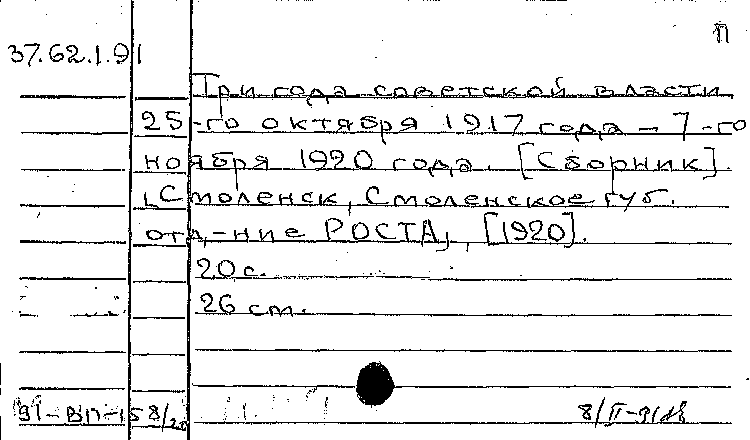 П
37.62.1.91
Три года советской власти
25-го октября 1917 года – 7-го
ноября 1920 года. [Сборник].
Смоленск, Смоленское губ.
отд-ние РОСТА, [1920].
20 с.
26 см.
91-ВП-158/20